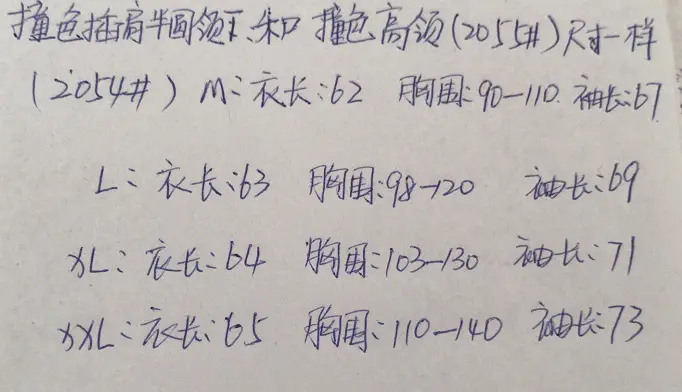 撞色插肩半圆领下、和 撞色高领(2055#)尺寸一样
(2054#) M:衣长:62 胸围:90—110 袖长:67
L:衣长:63 胸围:98—120 袖长:69
XL:衣长:64 胸围:103—130 袖长:71
XXL:衣长:65 胸围:110—140 袖长:73